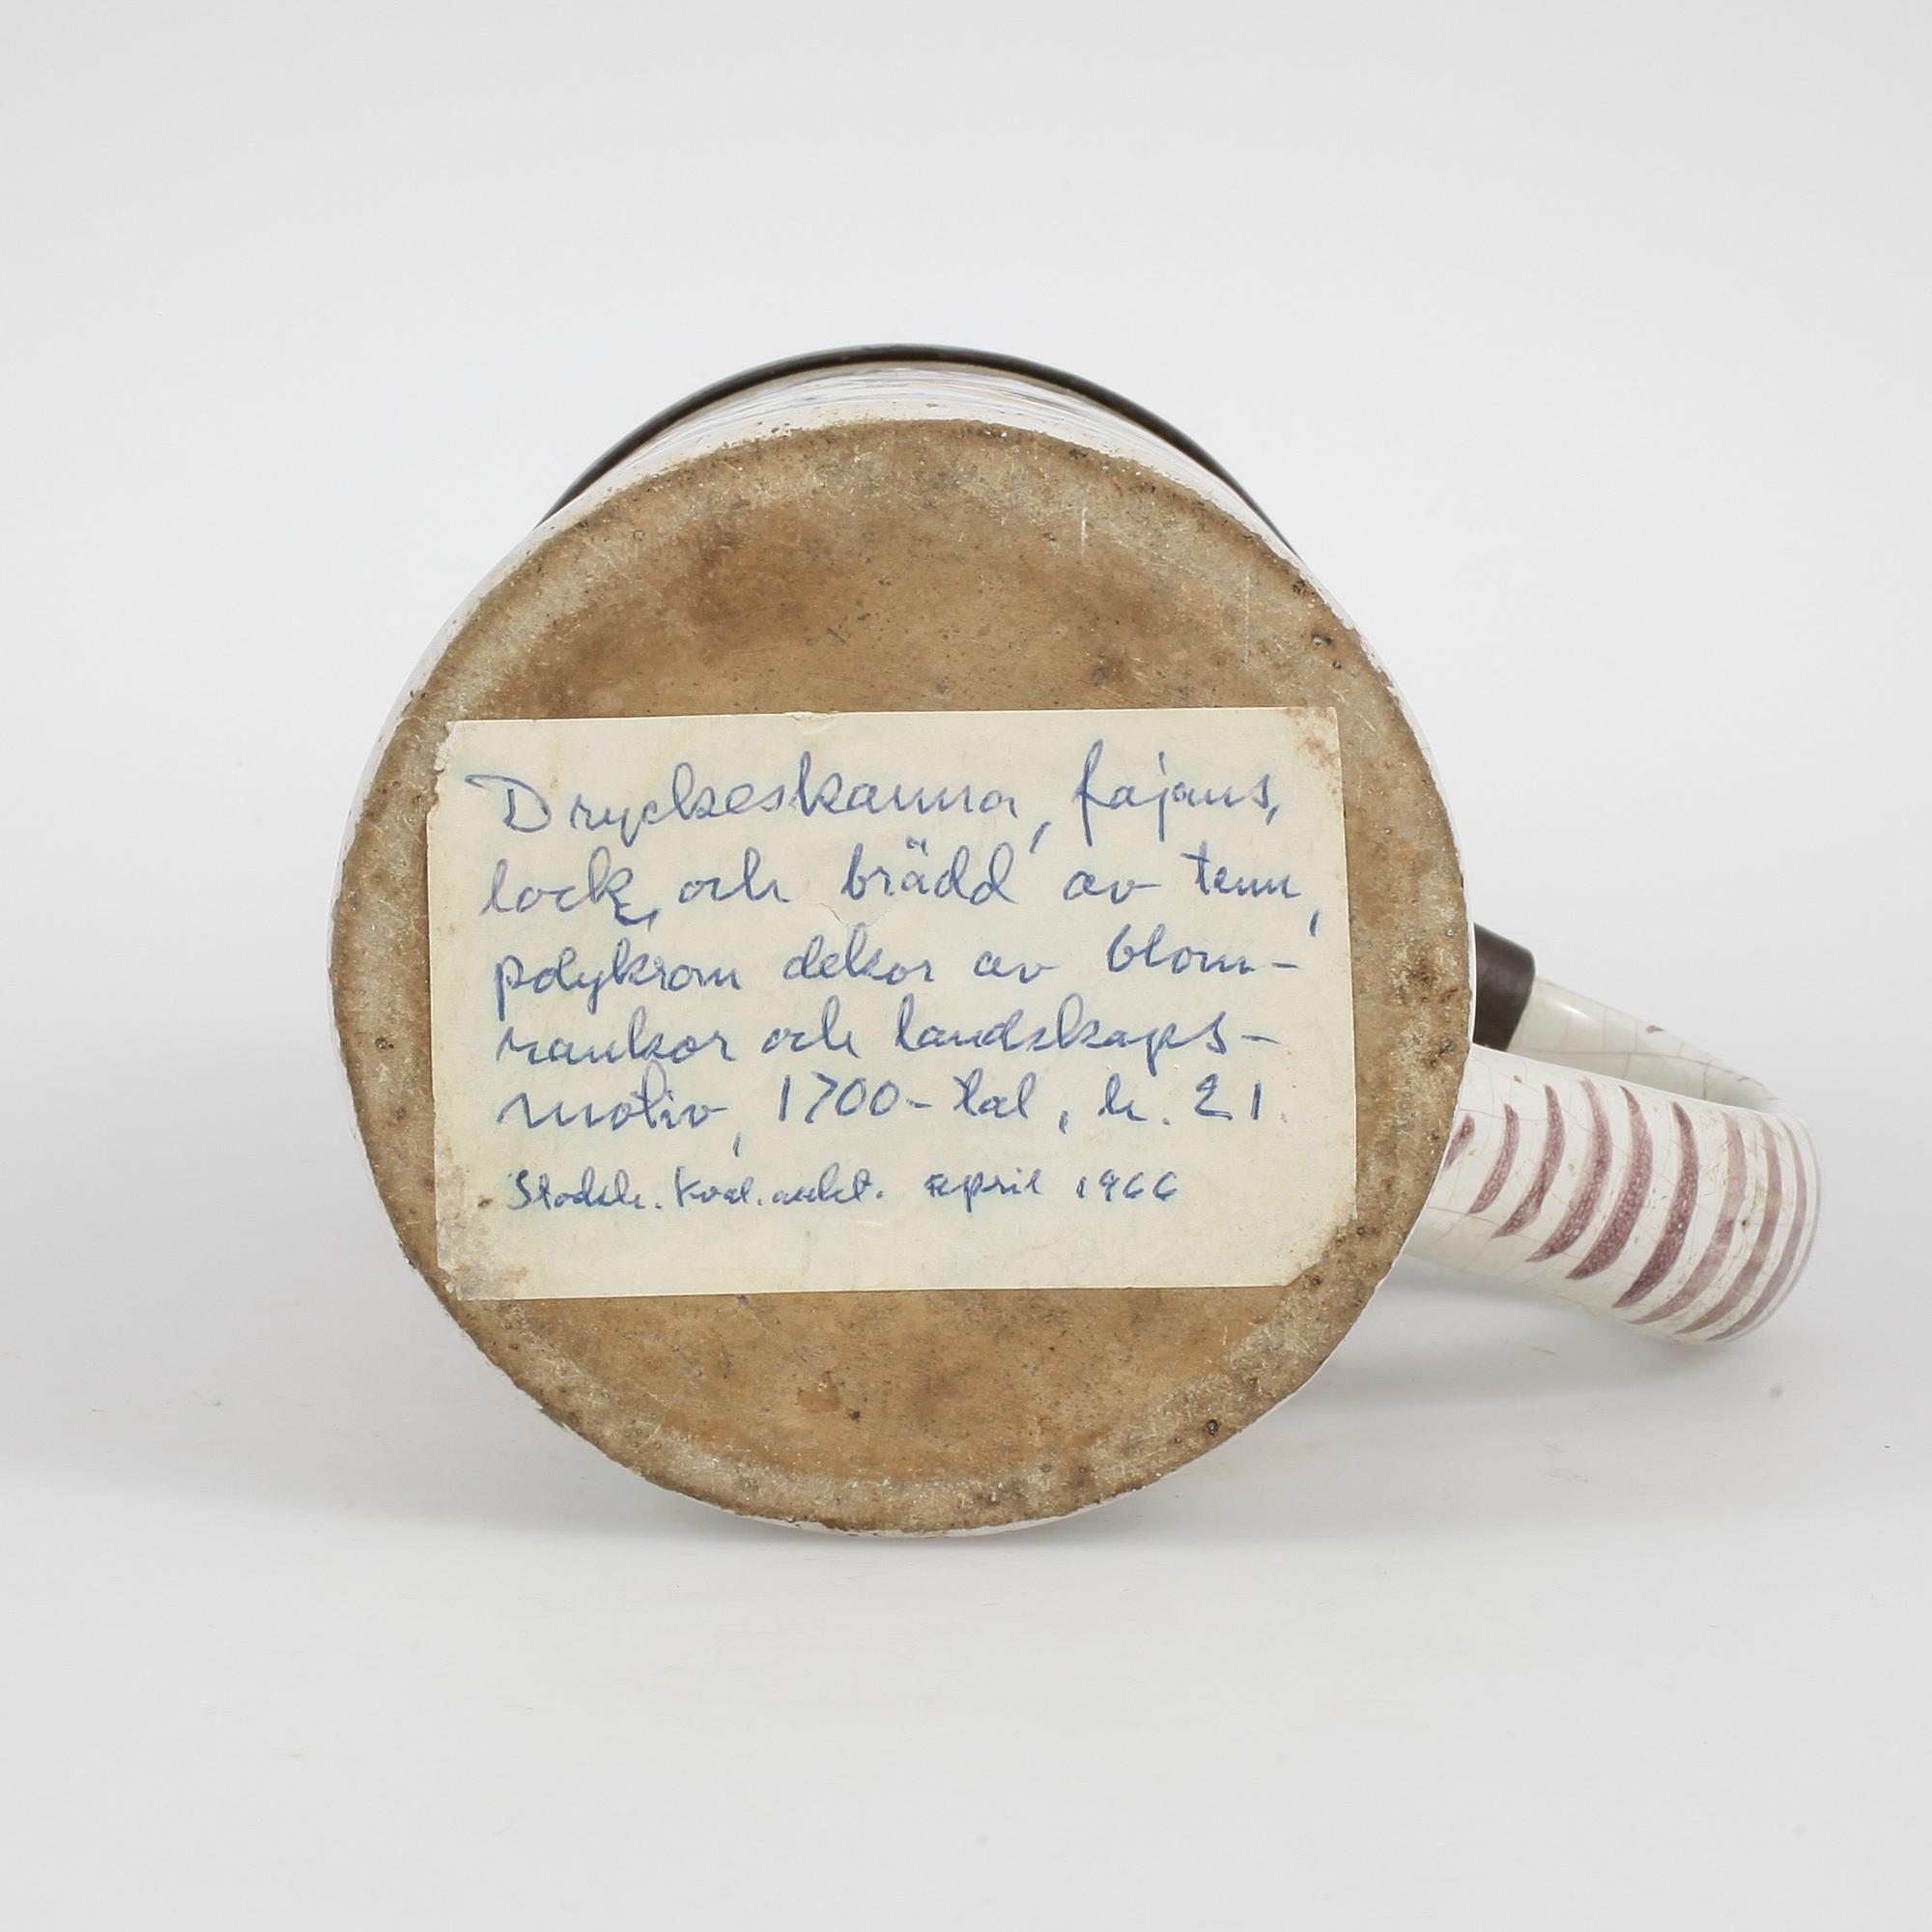 Dryckeskanna, fajans,
lock och brädd av tenn,
polykrom dekor av blom-
rankor och landskaps-
motiv, 1700-tal, h. 21.
Stocksh. Kval. aukt. april 1966